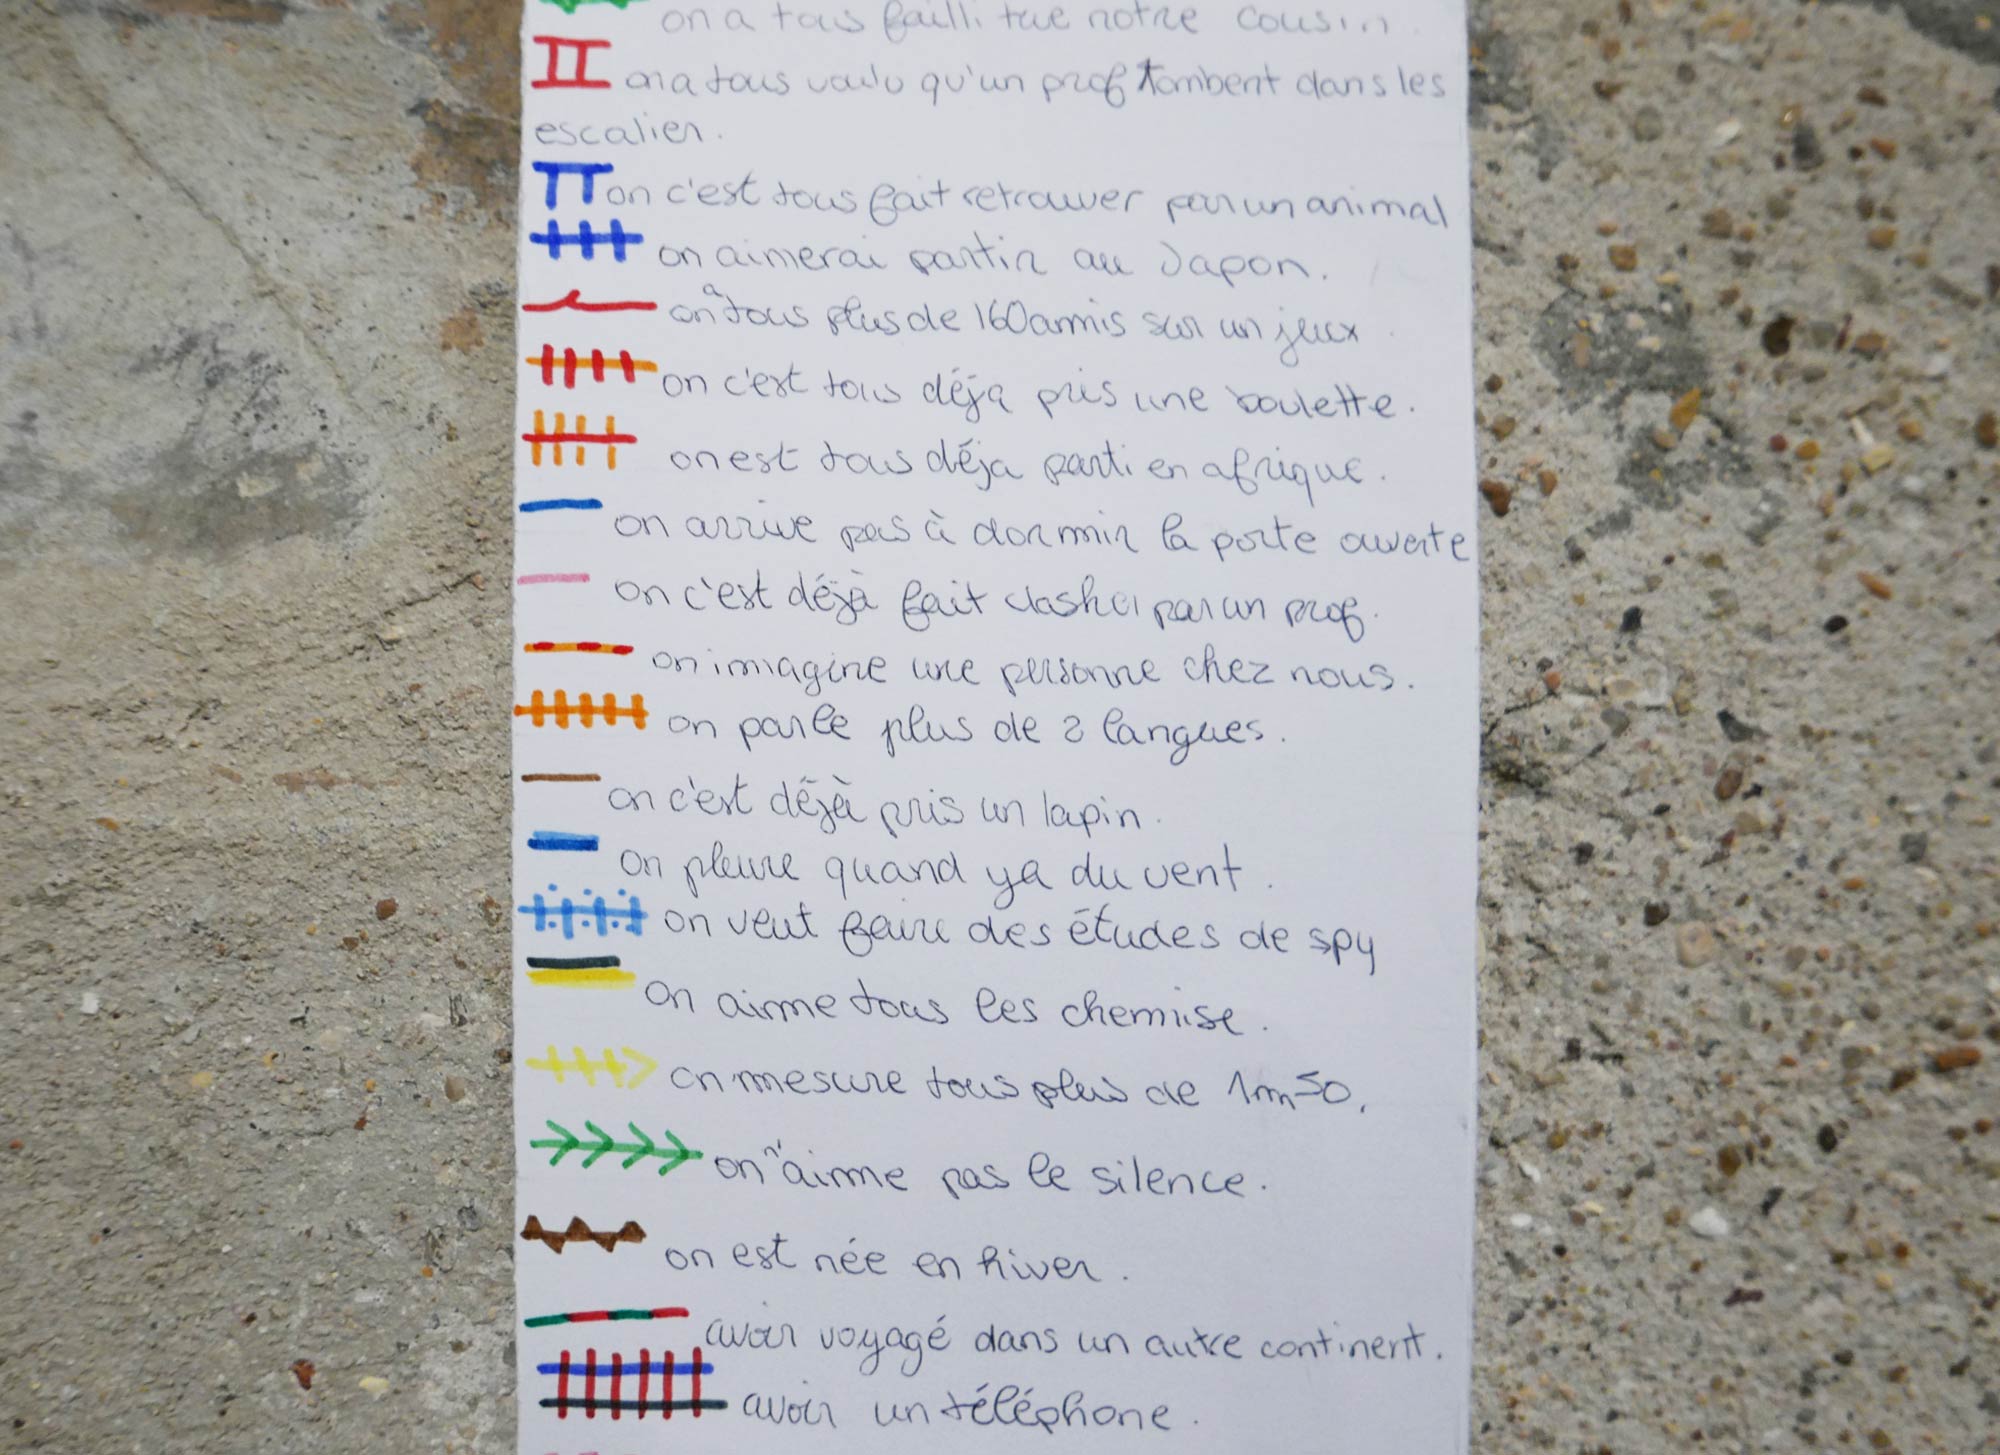 on a tous failli tue notre cousin.
on a tous voulu qu'un prof tombent dans les
escalier.
on c'est tous fait retrouver par un animal
on aimerai partir au Japon.
on a tous plus de 160 amis sur un jeux
on c'est tous déja pris une boulette.
on est tous déja parti en afrique.
on arrive pas à dormir la porte ouverte
on c'est déjà fait clasher par un prof.
on imagine une personne chez nous.
on parle plus de 2 langues.
on c'est déjà pris un lapin.
on pleure quand ya du vent.
on veut faire des études de spy
on aime tous les chemise.
on mesure tous plus de 1m50.
on n'aime pas le silence.
on est née en hiver.
avoir voyagé dans un autre continent.
avoir un téléphone.